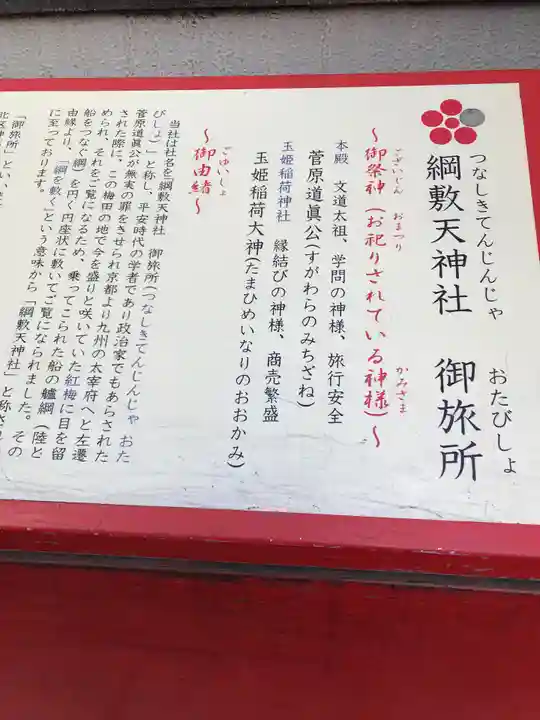 つなしきてんじんじゃ おたびしょ
綱敷天神社 御旅所
ごさいじん おまつり かみさま
～御祭神(お祀りされている神様)～
本殿 文道太祖、学問の神様、旅行安全
菅原道眞公(すがわらのみちざね)
玉姫稲荷神社 縁結びの神様、商売繁盛
玉姫稲荷大神(たまひめいなりのおおかみ)
ごゆいしょ
～御由緒～
当社は社名を「綱敷天神社 御旅所(つなしきてんじんじゃ おた
びしょ)」と称し、平安時代の学者であり政治家でもあらされた
菅原道眞公が無実の罪をきせられ京都より九州の太宰府へと左遷
された際に、この梅田の地で今を盛りと咲いていた紅梅に目を留
められ、それをご覧になるため、乗ってこられた船の艫綱(陸と
船をつなぐ綱)を円く円座状に敷いてご覧になられました。その
由縁より、「綱を敷く」という意味から「綱敷天神社」と称され
に至っております。
「御旅所」とい